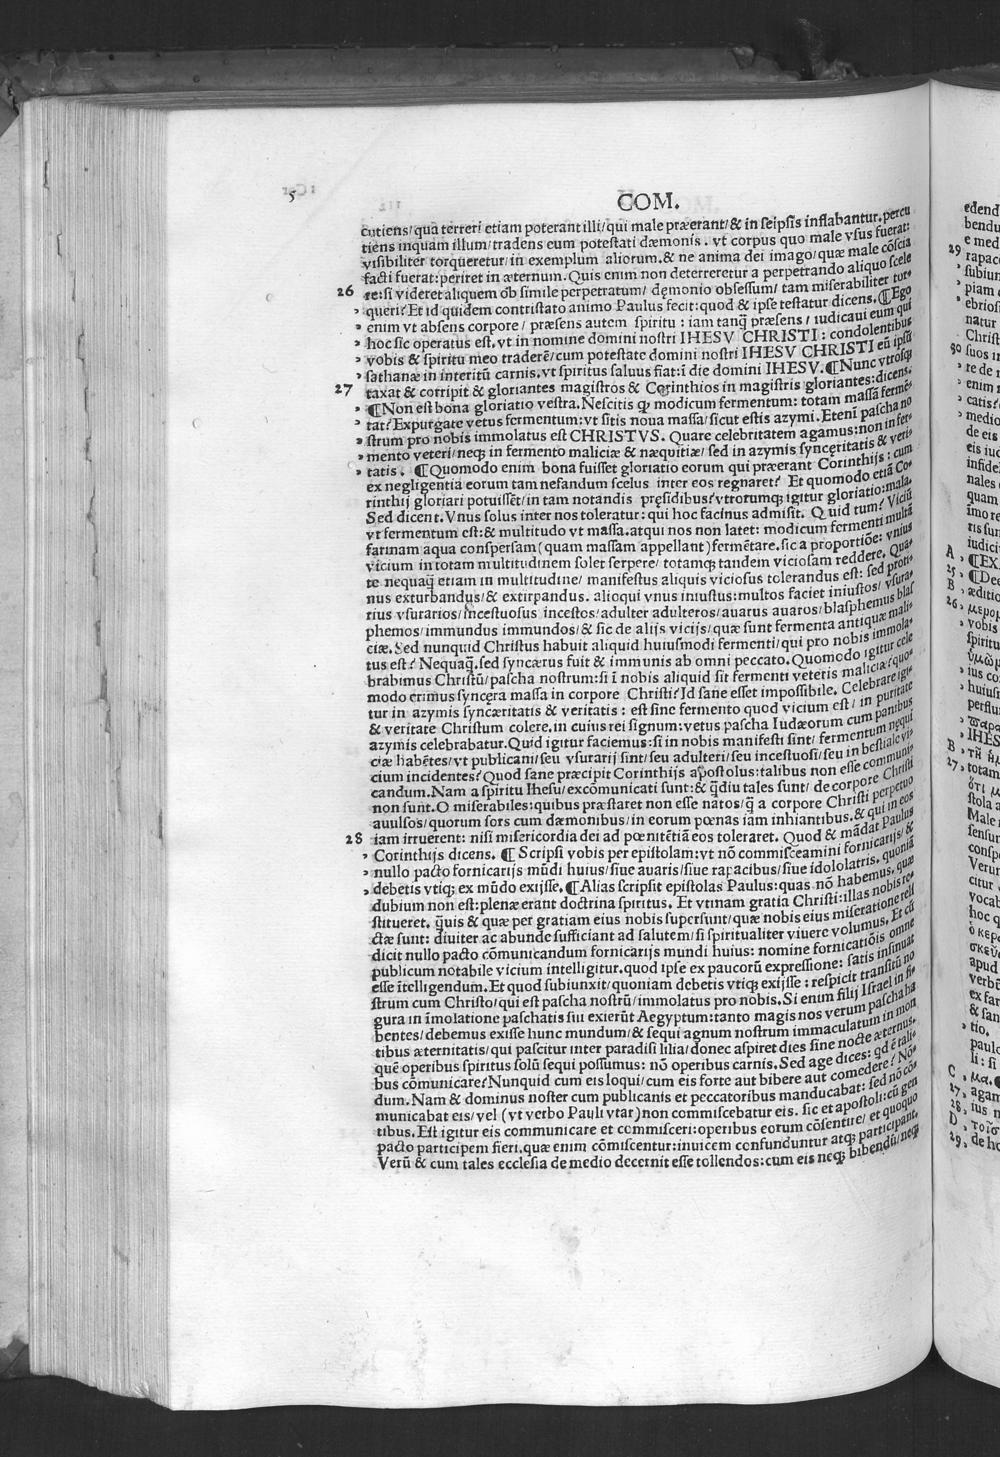 5
COM.
cutiens/qua terreri etiam poterant illi/qui male præerant/& in seipsis inflabantur.percu
tiens inquam illum/tradens eum potestati dæmonis. vt corpus quo male vsus fuerat:
visibiliter torqueretur/in exemplum aliorum.& ne anima dei imago/quæ male cōscia
facti fuerat:periret in æternum.Quis enim non deterreretur a perpetrando aliquo scele
26 re:si videret aliquem ob simile perpetratum/ dęmonio obsessum/ tam miserabiliter tor⸗
queri? Et id quidem contristato animo Paulus fecit:quod & ipse testatur dicens.¶Ego
, enim vt absens corpore/ præsens autem spiritu : iam tanq̄ præsens / iudicaui eum qui
, hoc sic operatus est,vt in nomine domini nostri IHESV CHRISTI: condolentibus
, vobis & spiritu meo traderē/cum potestate domini nostri IHESV CHRISTI eū ipsū
, sathanæ in interitū carnis.vt spiritus saluus fiat:ī die domini IHESV.¶Nunc vtrosq;
27 taxat & corripit & gloriantes magistros & Corinthios in magistris gloriantes:dicens.
, ¶Non est bona gloriatio vestra.Nescitis q modicum fermentum: totam massā fermē⸗
, tat? Expurgate vetus fermentum:vt sitis noua massa/sicut estis azymi.Etenī pascha no
, strum pro nobis immolatus est CHRISTVS. Quare celebritatem agamus:non in fer⸗
, mento veteri/neq; in fermento maliciæ & næquitiæ/ sed in azymis syncęritatis & veri⸗
, tatis. ¶Quomodo enim bona fuisset gloriatio eorum qui præerant Corinthijs : cum
ex negligentia eorum tam nefandum scelus inter eos regnaret? Et quomodo etiā Co⸗
rinthij gloriari potuissēt/in tam notandis pręsidibus?vtrorumq; igitur gloriatio:mala.
Sed dicent.Vnus solus inter nos toleratur:qui hoc facinus admisit. Quid tum? Viciū
vt fermentum est:& multitudo vt massa.atqui nos non latet: modicum fermenti multā
farinam aqua conspersam(quam massam appellant)fermētare.sic a proportiōe: vnius
vicium in totam multitudinem solet serpere/ totamq; tandem viciosam reddere. Qua⸗
te nequaq̄ etiam in multitudine/ manifestus aliquis viciosus tolerandus est: sed proti⸗
nus exturbandus/& extirpandus. alioqui vnus iniustus:multos faciet iniustos/ vsura⸗
rius vsurarios/incestuosus incestos/adulter adulteros/auarus auaros/blasphemus blas
phemos/immundus immundos/& sic de alijs vicijs/quæ sunt fermenta antiquæ mali⸗
ciæ.Sed nunquid Christus habuit aliquid huiusmodi fermenti/qui pro nobis immola⸗
tus est? Nequaq̄.sed syncærus fuit & immunis ab omni peccato.Quomodo igitur cele
brabimus Christū/pascha nostrum:si ī nobis aliquid sit fermenti veteris maliciæ? quo⸗
modo erimus syncęra massa in corpore Christi? Id sane esset impossibile. Celebrare igi⸗
tur in azymis syncæritatis & veritatis : est sine fermento quod vicium est/ in puritate
& veritate Christum colere.in cuius rei signum:vetus pascha Iudæorum cum panibus
azymis celebrabatur.Quid igitur faciemus:si in nobis manifesti sint/ fermentum nequi
ciæ habētes/vt publicani/seu vsurarij sint/seu adulteri/seu incestuosi/seu in bestiale vi⸗
cium incidentes? Quod sane præcipit Corinthijs apostolus:talibus non esse communi⸗
candum.Nam a spiritu Ihesu/excōmunicati sunt:& q̄diu tales sunt/ de corpore Christi
non sunt.O miserabiles:quibus præstaret non esse natos/q̄ a corpore Christi perpetuo
auulsos/quorum sors cum dæmonibus/in eorum pœnas iam inhiantibus.& qui in eos
28 iam irruerent: nisi misericordia dei ad pœnitētiā eos toleraret. Quod & mādat Paulus
, Corinthijs dicens. ¶Scripsi vobis per epistolam:vt nō commisceamini fornicarijs/&
, nullo pacto fornicarijs mūdi huius/siue auaris/siue rapacibus/siue idololatris. quoniā
, debetis vtiq; ex mūdo exijsse.¶Alias scripsit epistolas Paulus:quas nō habemus.quæ
dubium non est:plenæ erant doctrina spiritus. Et vtinam gratia Christi:illas nobis re⸗
stitueret. q̄uis & quæ per gratiam eius nobis supersunt/quæ nobis eius miseratione reli
ctæ sunt: diuiter ac abunde sufficiant ad salutem/si spiritualiter viuere volumus. Et cū
dicit nullo pacto cōmunicandum fornicarijs mundi huius: nomine fornicatiōis omne
publicum notabile vicium intelligitur.quod ipse ex paucorū expressione: satis insinuat
esse ītelligendum.Et quod subiunxit/quoniam debetis vtiq; exijsse : respicit transitū no
strum cum Christo/qui est pascha nostrū/immolatus pro nobis.Si enim filij Israel in fi⸗
gura in īmolatione paschatis sui exierūt Aegyptum:tanto magis nos verum pascha ha
bentes/debemus exisse hunc mundum/& sequi agnum nostrum immaculatum in mon
tibus æternitatis/qui pascitur inter paradisi lilia/donec aspiret dies sine nocte æternus.
quē operibus spiritus solū sequi possumus: nō operibus carnis.Sed age dices: qd ē tali⸗
bus cōmunicare? Nunquid cum eis loqui/cum eis forte aut bibere aut comedere? Nō⸗
dum.Nam & dominus noster cum publicanis et peccatoribus manducabat: sed nō cō⸗
municabat eis/vel (vt verbo Pauli vtar)non commiscebatur eis. sic et apostoli:cū gen
tibus.Est igitur eis communicare et commisceri:operibus eorum cōsentire/ et quoquo
pacto participem fieri.quæ enim cōmiscentur:inuicem confunduntur atq; participant.
Verū & cum tales ecclesia de medio decernit esse tollendos:cum eis neq; bibendū/neq;